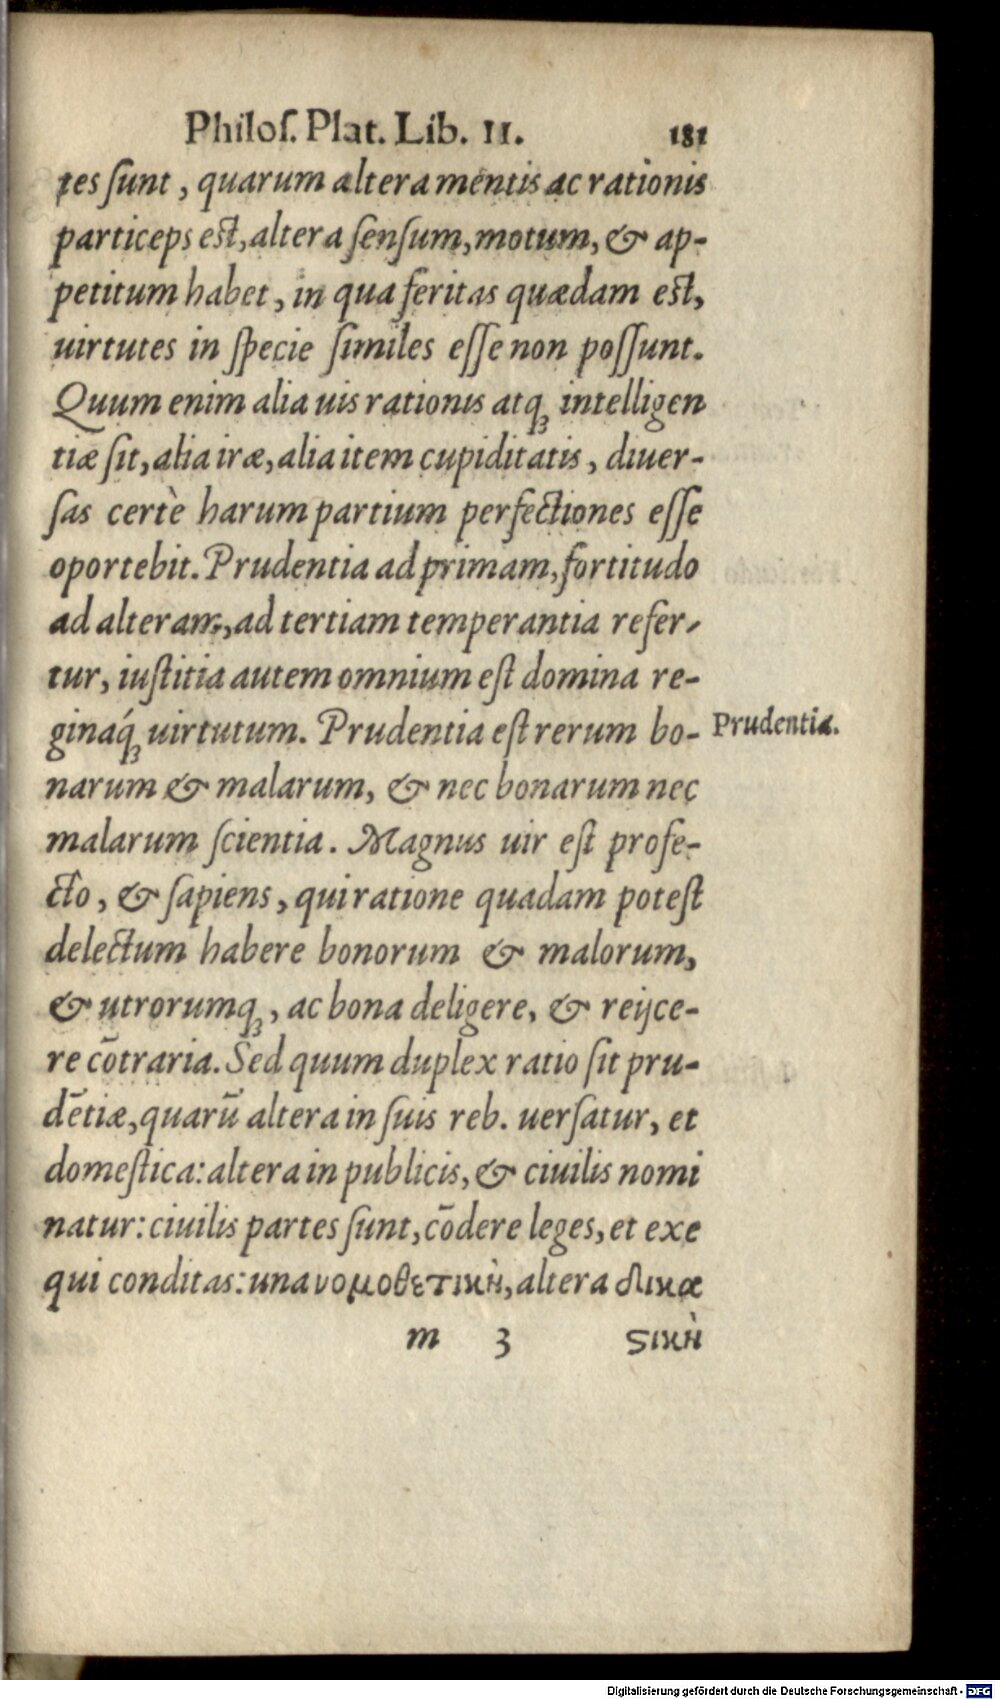 Philoſ. Plat. Lib. II. 181
tes ſunt, quarum altera mentis ac rationis
particeps est, altera ſenſum, motum, & ap-
petitum habet, in qua feritas quædam est,
uirtutes in ſpecie ſimiles eſſe non poſſunt.
Quum enim alia uis rationis atq́ꝫ intelligen
tiæ ſit, alia iræ, alia item cupiditatis, diuer-
ſas certè harum partium perfectiones eſſe
oportebit. Prudentia ad primam, fortitudo
ad alteram, ad tertiam temperantia refer-
tur, iuſtitia autem omnium eſt domina re-
ginaq́ꝫ uirtutum. Prudentia eſt rerum bo-
Prudentia.
narum & malarum, & nec bonarum nec
malarum ſcientia. Magnus uir eſt profe-
cto, & ſapiens, qui ratione quadam poteſt
delectum habere bonorum & malorum,
& utrorumqꝫ, ac bona deligere, & reijce-
re cōtraria. Sed quum duplex ratio ſit pru-
dētiæ, quarū altera in ſuis reb. uerſatur, et
domeſtica: altera in publicis, & ciuilis nomi
natur: ciuilis partes ſunt, cōdere leges, et exe
qui conditas: una νομοθετικὴ, altera δικα
m 3 ϛικὴ
Digitalisierung gefördert durch die Deutsche Forschungsgemeinschaft - DFG